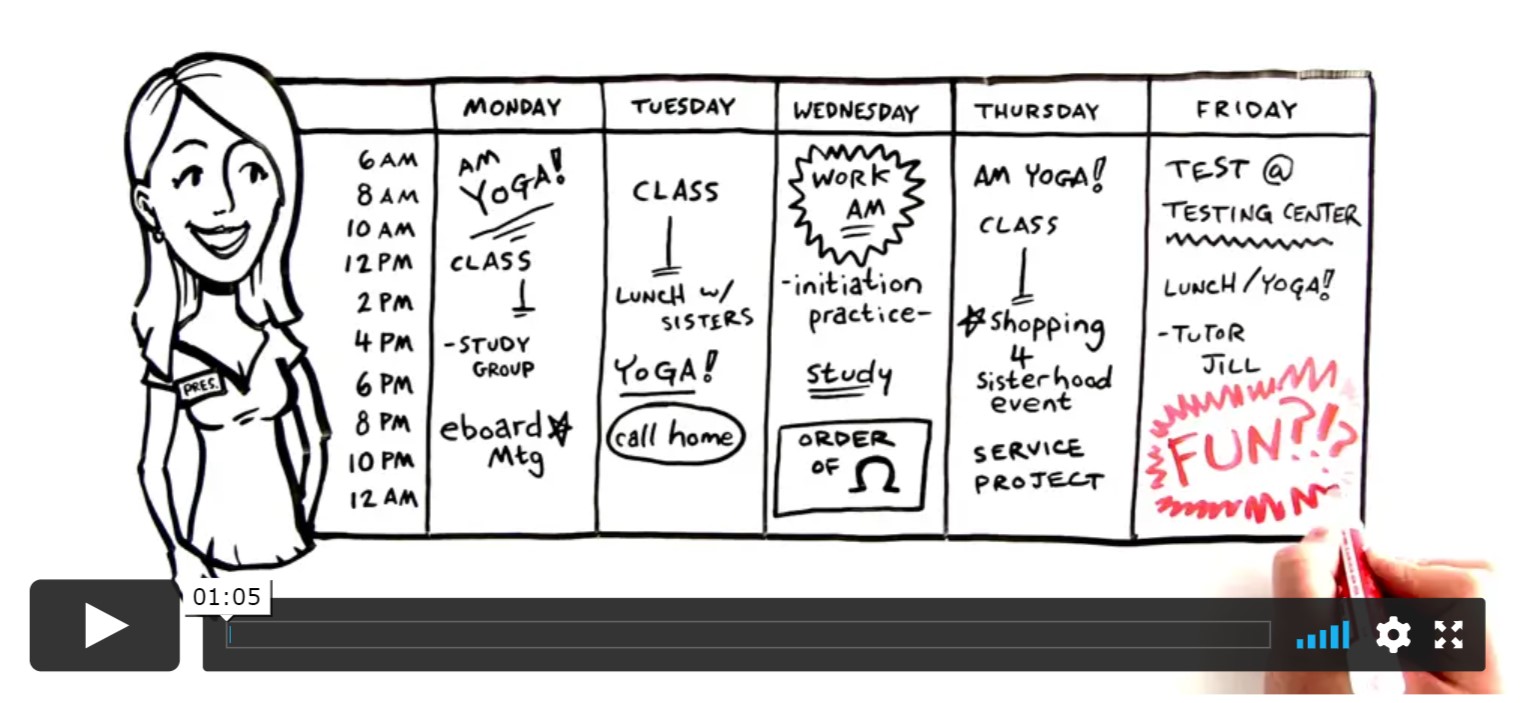 MONDAY TUESDAY WEDNESDAY THURSDAY FRIDAY
6 AM
8 AM
10 AM
12 PM
2 PM
4 PM
6 PM
8 PM
10 PM
12 AM
AM
YOGA!
CLASS
-STUDY
GROUP
eboard
Mtg
CLASS
LUNCH w/
SISTERS
YOGA!
call home
WORK
AM
-initiation
practice-
Study
ORDER
OF Ω
AM YOGA!
CLASS
Shopping
4
Sisterhood
event
SERVICE
PROJECT
TEST @
TESTING CENTER
LUNCH/YOGA!
-TUTOR
JILL
FUN?!?
PRES.
01:05